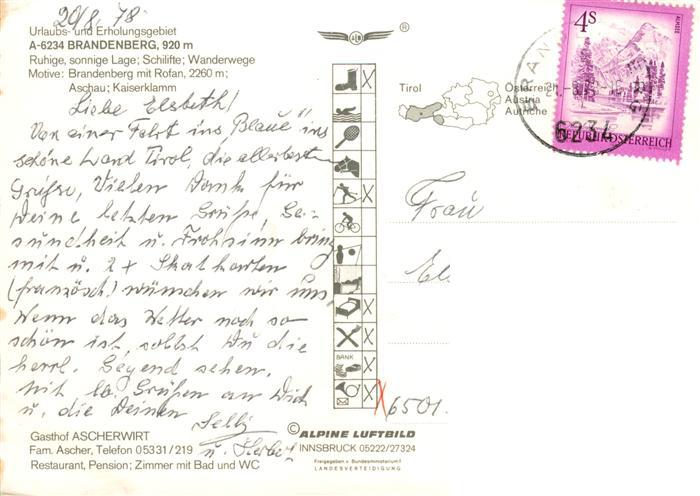 20/8. 78
Urlaubs- und Erholungsgebiet
A-6234 BRANDENBERG, 920 m
Ruhige, sonnige Lage; Schilifte; Wanderwege
Motive: Brandenberg mit Rofan, 2260 m;
Aschau; Kaiserklamm
Liebe Elsbeth!
Von einer Fahrt ins "Blaue" ins
schöne Land Tirol, die allerbesten
Grüße, Vielen Dank für
Deine letzten Grüße, Ge-
sundheit u. Frohsinn bring
mit u. 2 x Skatkarten
(französch.) wünschen wir uns,
Wenn das Wetter noch so
schön ist, sollst Du die
herrl. Gegend sehen.
Mit lb. Grüßen an Dich
u. die Deinen
u. Herbert
Gasthof ASCHERWIRT
Fam. Ascher, Telefon 05331/219
Restaurant, Pension; Zimmer mit Bad und WC
®
BANK
Tirol
Österreich
Austria
Autriche
4S
ALMSEE
REPUBLIK ÖSTERREICH
6234
Frau
El
6501.
© ALPINE LUFTBILD
INNSBRUCK 05222/27324
Freigegeben v. Bundesministerium f.
LANDESVERTEIDIGUNG